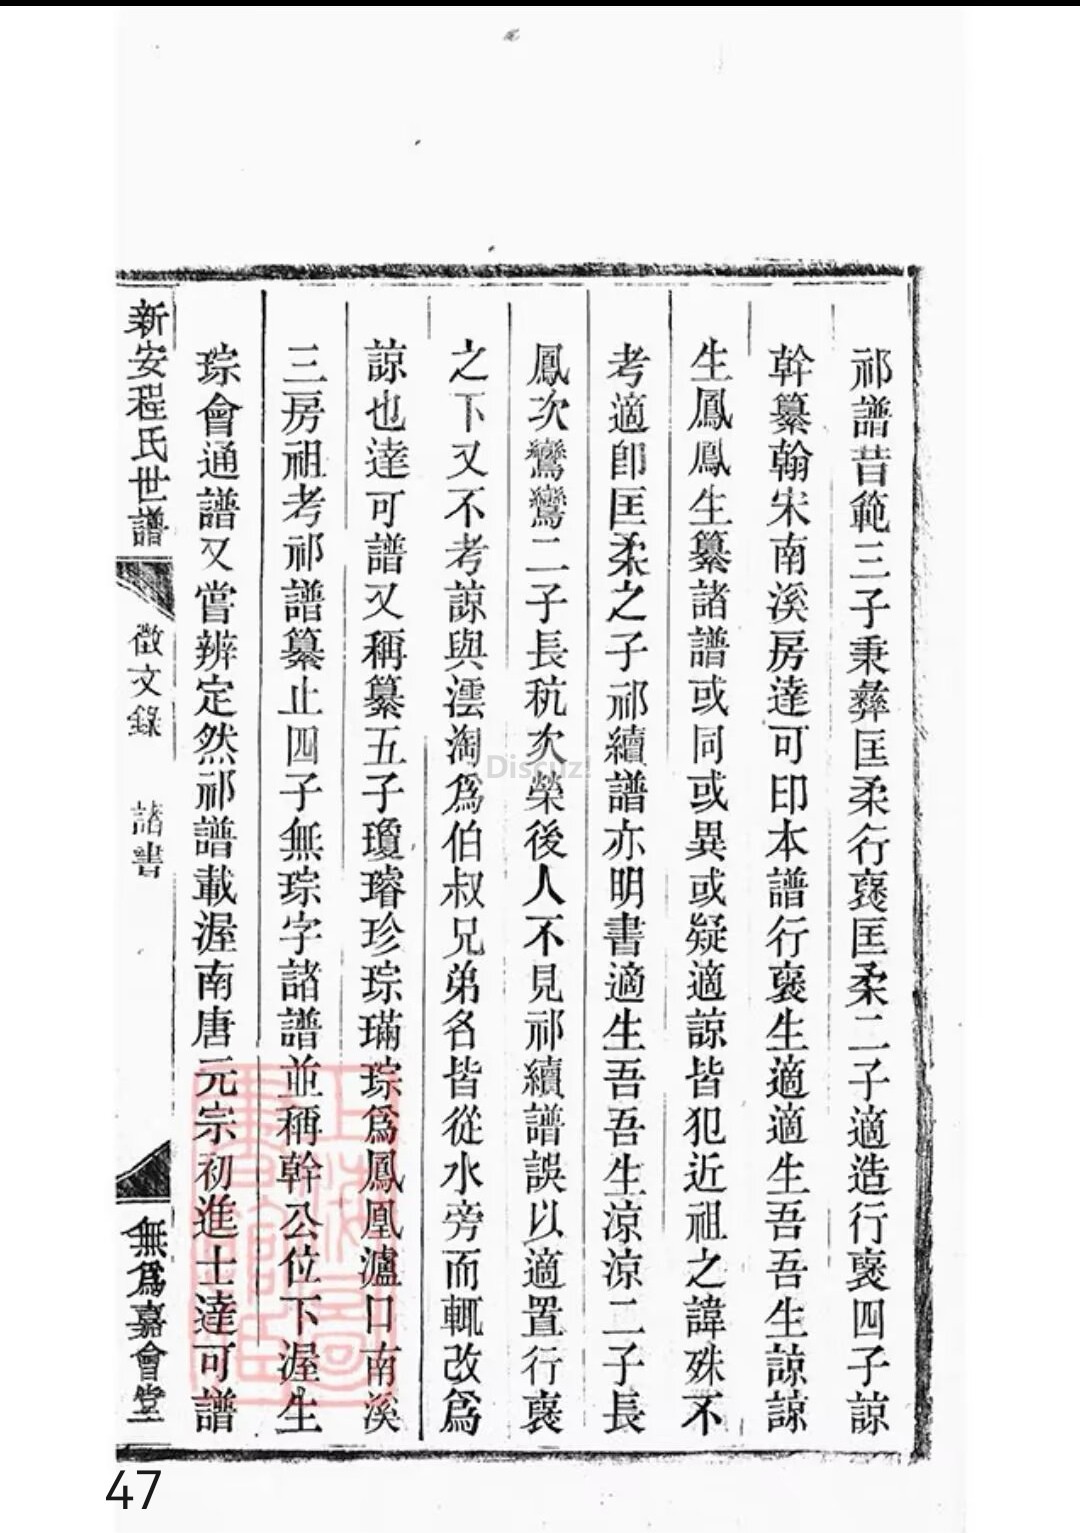 祁譜昔範三子秉彝匡柔行褒匡柔二子適造行褒四子諒
幹纂翰宋南溪房達可印本譜行褒生適適生吾吾生諒諒
生鳳鳳生纂諸譜或同或異或疑適諒皆犯近祖之諱殊不
考適卽匡柔之子祁續譜亦明書適生吾吾生涼涼二子長
鳳次鸞鸞二子長秔次榮後人不見祁續譜誤以適置行褒
之下又不考諒與澐淘爲伯叔兄弟名皆從水旁而輒改爲
諒也達可譜又稱纂五子瓊璿珍琮璊琮爲鳳凰瀘口南溪
三房祖考祁譜纂止四子無琮字諸譜並稱幹公位下渥生
琮會通譜又嘗辨定然祁譜載渥南唐元宗初進士達可譜
新安程氏世譜
徵文錄 諸書
無爲嘉會堂
上海圖書館藏
Discuz!
47